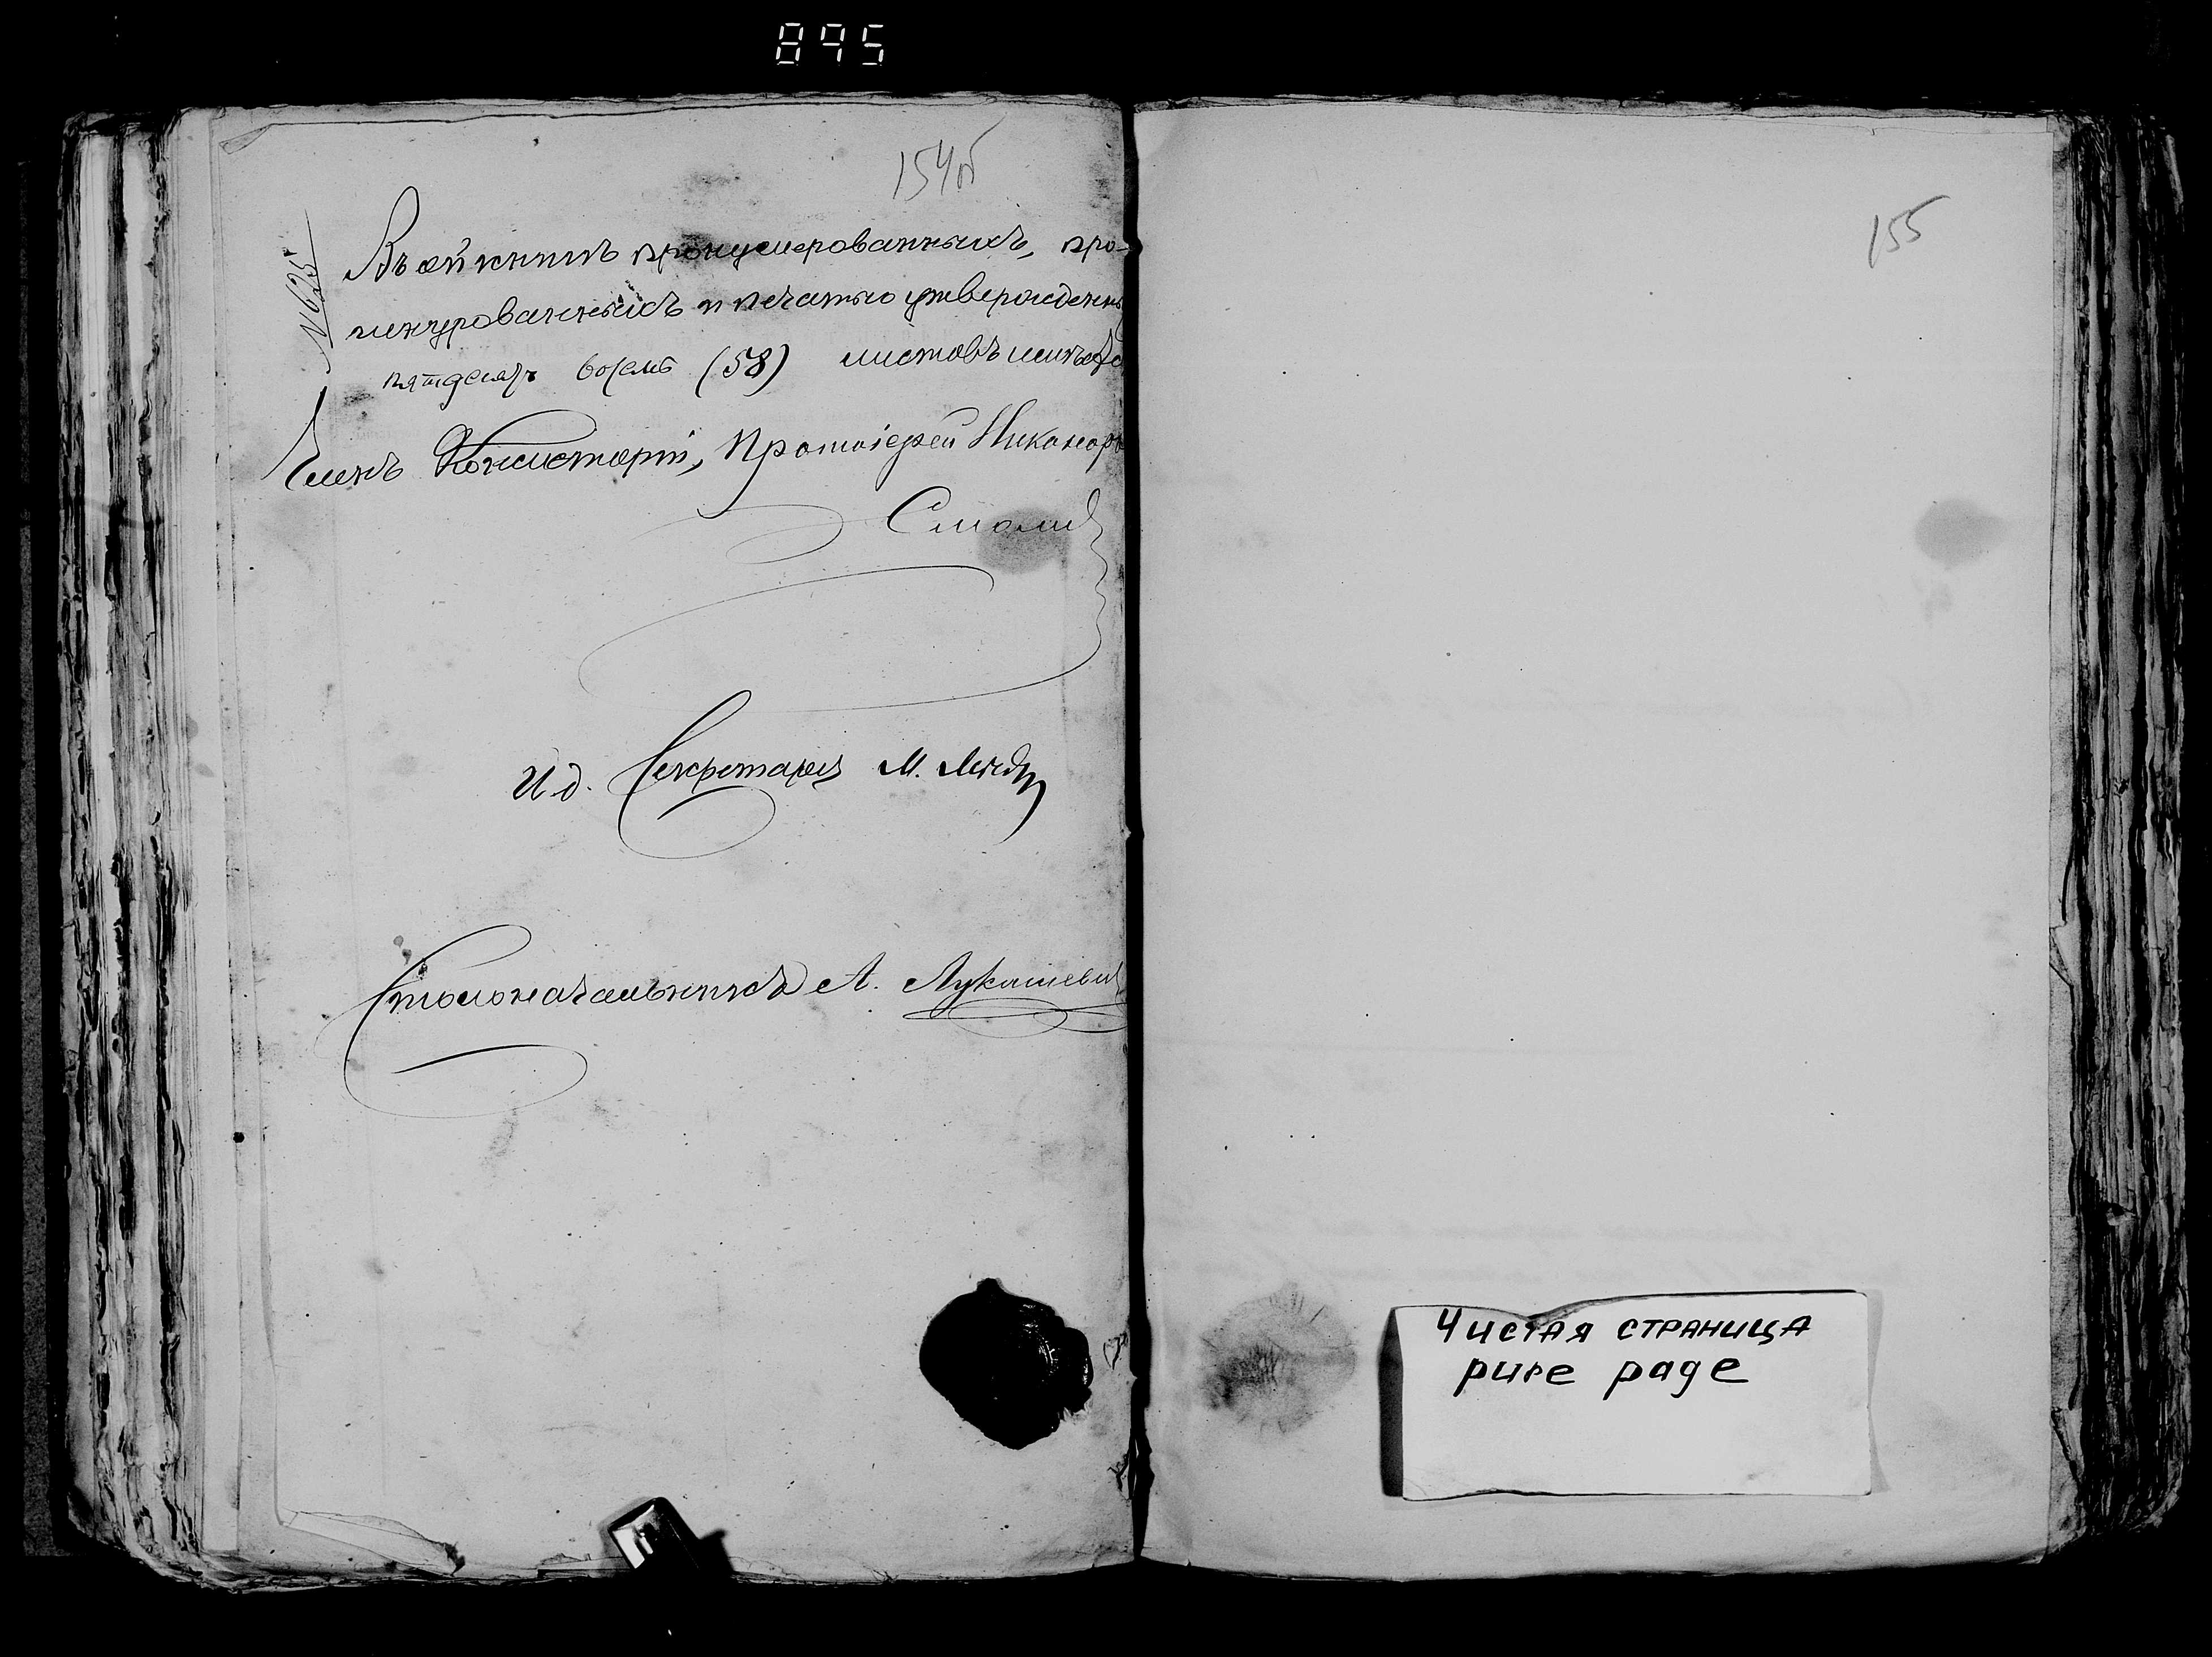 895
154об
№ 625
Въ сей книгѣ пронумерованныхъ, про-
шнурованныхъ и печатью утвержденны
пятдесятъ восемь (58) листовъ
Членъ Консисторіи, Протоіерей Никаноръ
Смолич
И. д. Секретаря М.
Столоначальникъ А. Лукашевич
155
Чистая страница
pure page